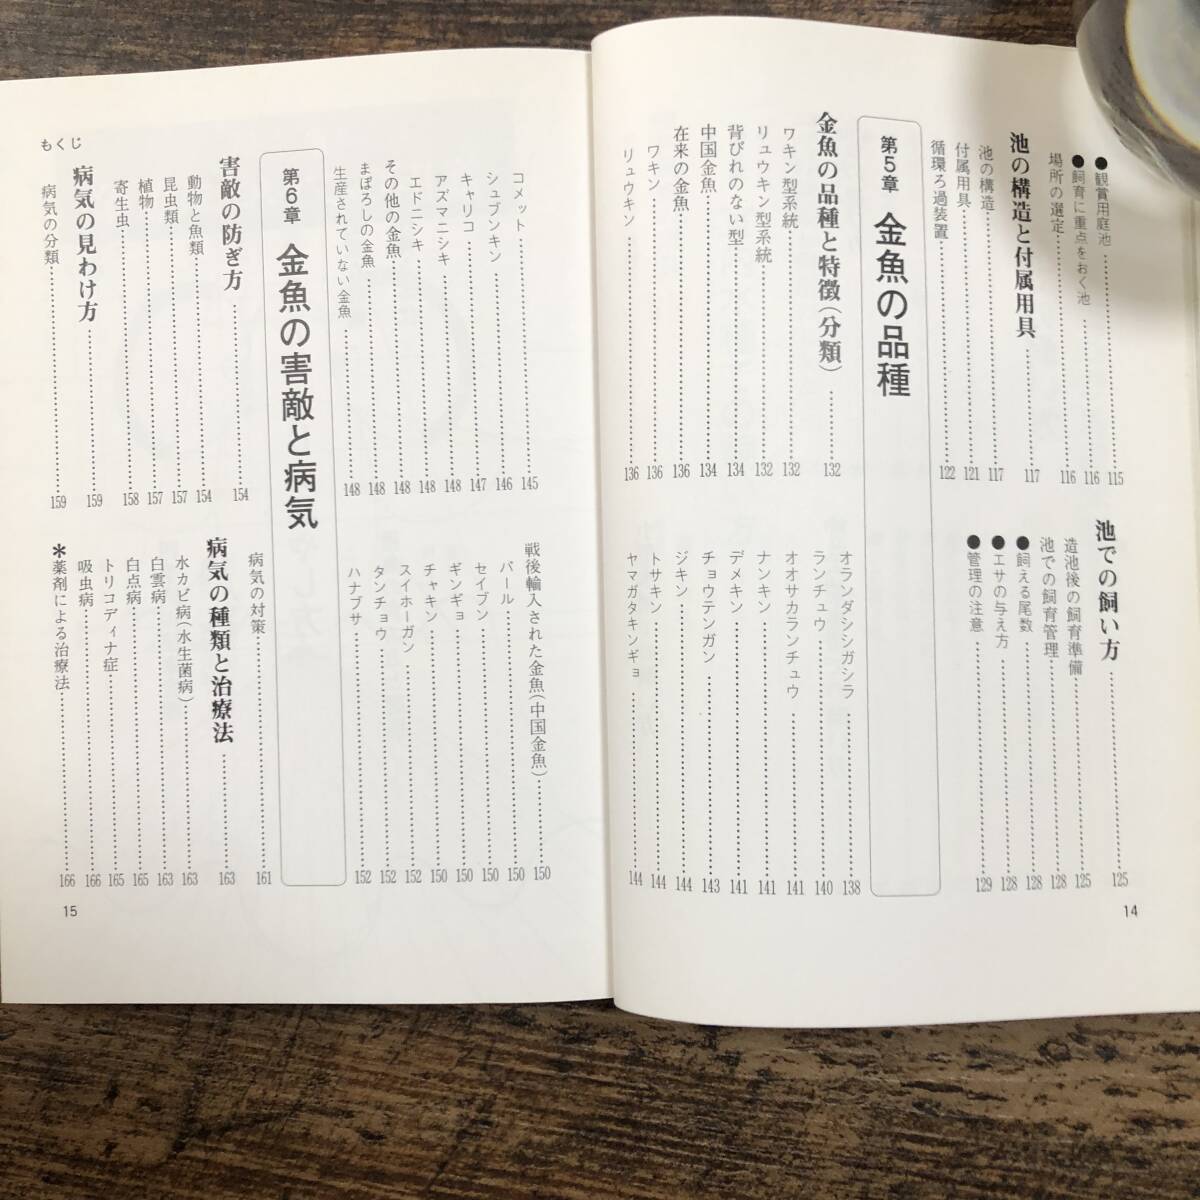 ●観賞用庭池……115
●飼育に重点をおく池……116
場所の選定……116
池の構造と付属用具……117
池の構造……117
付属用具……121
循環ろ過装置……122
池での飼い方……125
造池後の飼育準備……125
池での飼育管理……128
●飼える尾数……128
●エサの与え方……128
●管理の注意……129
第5章 金魚の品種
金魚の品種と特徴(分類)……132
ワキン型系統……132
リュウキン型系統……132
背びれのない型……134
中国金魚……134
在来の金魚……136
ワキン……136
リュウキン……136
オランダシシガシラ……138
ランチュウ……140
オオサカランチュウ……141
ナンキン……141
デメキン……141
チョウテンガン……143
ジキン……144
トサキン……144
ヤマガタキンギョ……144
14
コメット……145
シュブンキン……146
キャリコ……147
アズマニシキ……148
エドニシキ……148
その他の金魚……148
まぼろしの金魚……148
生産されていない金魚……148
戦後輸入された金魚(中国金魚)……150
パール……150
セイブン……150
ギンギョ……150
チャキン……150
スイホーガン……152
タンチョウ……152
ハナブサ……152
第6章 金魚の害敵と病気
害敵の防ぎ方……154
動物と魚類……154
昆虫類……157
植物……157
寄生虫……158
病気の見わけ方……159
病気の分類……159
病気の対策……161
病気の種類と治療法……163
水カビ病(水生菌病)……163
白雲病……163
白点病……165
トリコディナ症……165
吸虫病……166
*薬剤による治療法……166
もくじ
15